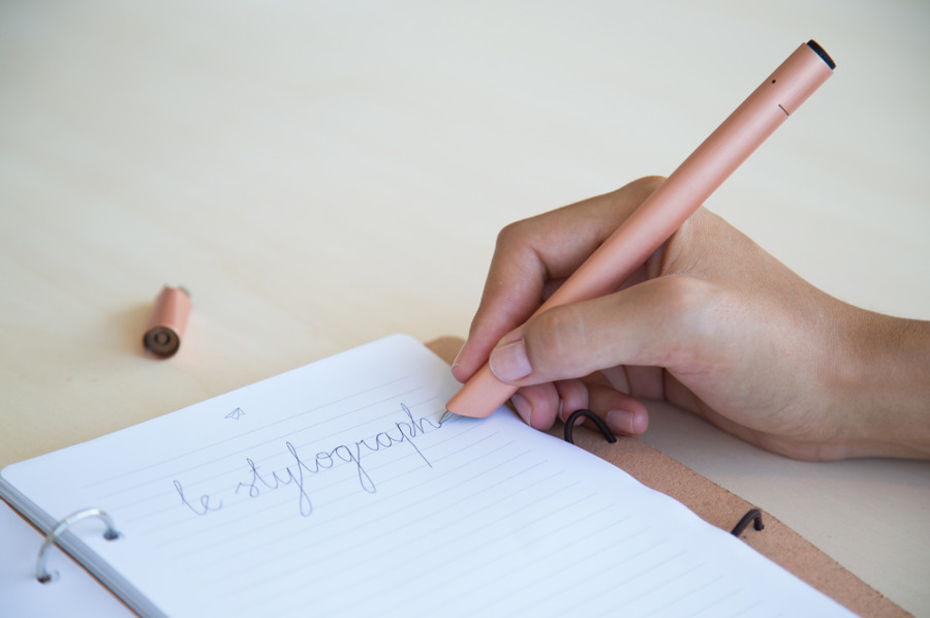 le stylograph